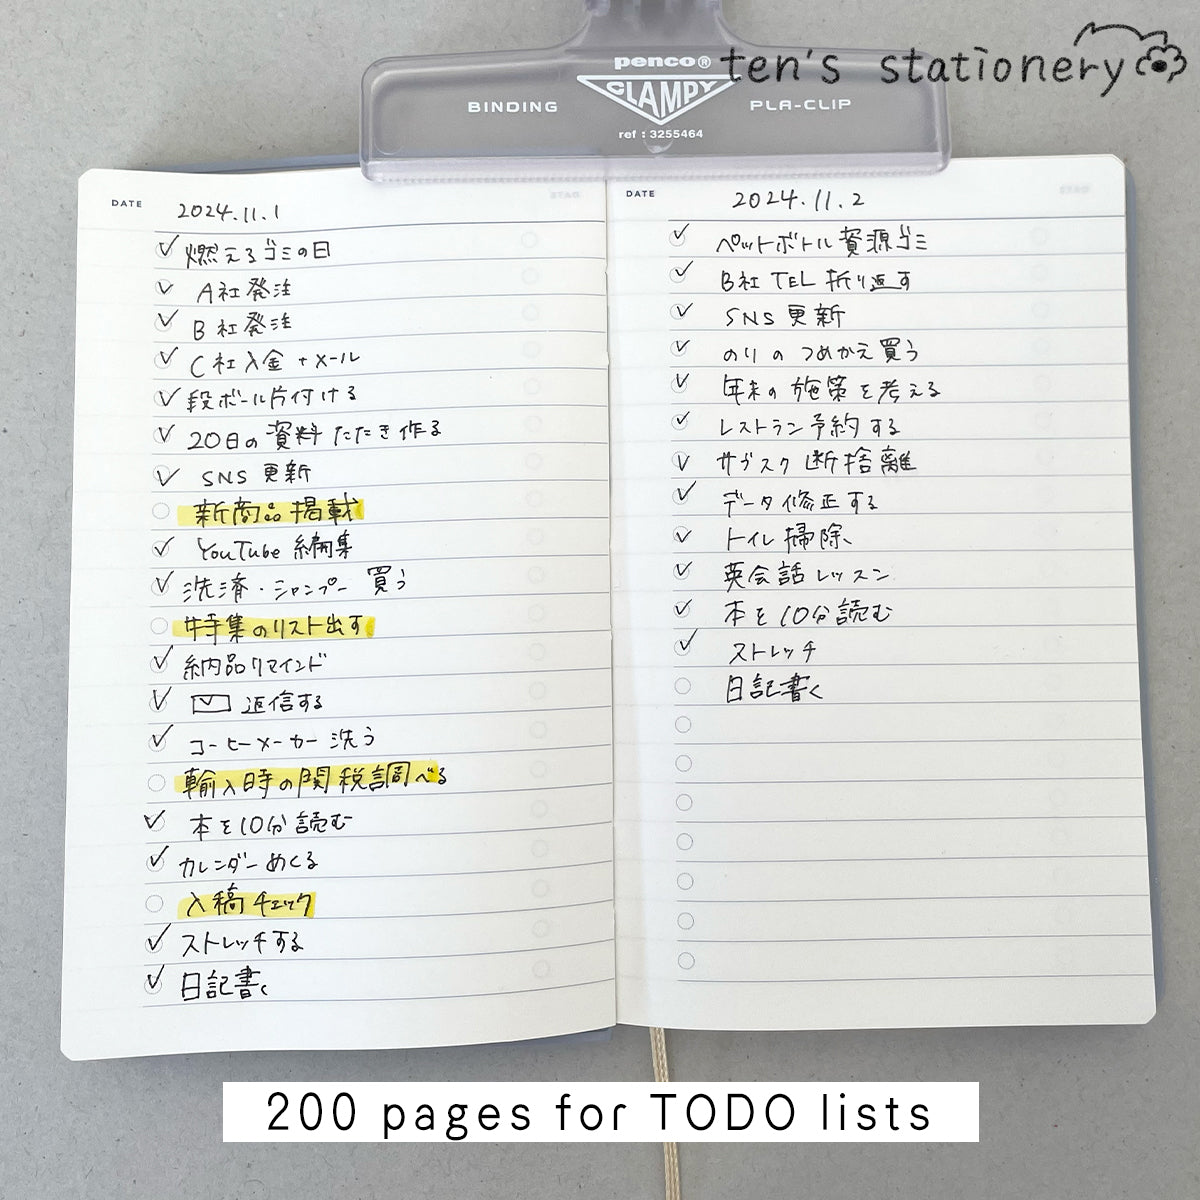 ten's stationery
penco®
CLAMPY
BINDING PLA-CLIP
ref : 3255464
DATE 2024.11.1
燃えるゴミの日
A社発注
B社発注
C社入金+メール
段ボール片付ける
20日の資料たたき作る
SNS更新
新商品掲載
YouTube編集
洗済・シャンプー買う
特集のリスト出す
納品リマインド
返信する
コーヒーメーカー洗う
輸入時の関税調べる
本を10分読む
カレンダーめくる
入稿チェック
ストレッチする
日記書く
DATE 2024.11.2
ペットボトル資源ゴミ
B社TEL折り返す
SNS更新
のりのつめかえ買う
年末の施策を考える
レストラン予約する
サブスク断捨離
データ修正する
トイレ掃除
英会話レッスン
本を10分読む
ストレッチ
日記書く
200 pages for TODO lists